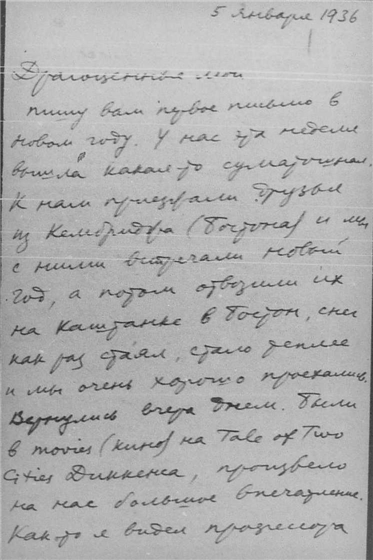 5 января 1936
Драгоценные мои
пишу вам первое письмо в
новом году. У нас эта неделя
вышла какая-то суматошная.
К нам приезжали друзья
из Кембриджа (Бостона) и мы
с ними встречали новый
год, а потом отвозили их
на Каштанке в Бостон, снег
как раз стаял, стало теплее
и мы очень хорошо проехались.
Вернулись вчера днем. Были
в movies (кино) на Tale of Two
Cities Диккенса, произвело
на нас большое впечатление.
Как-то я видел профессора